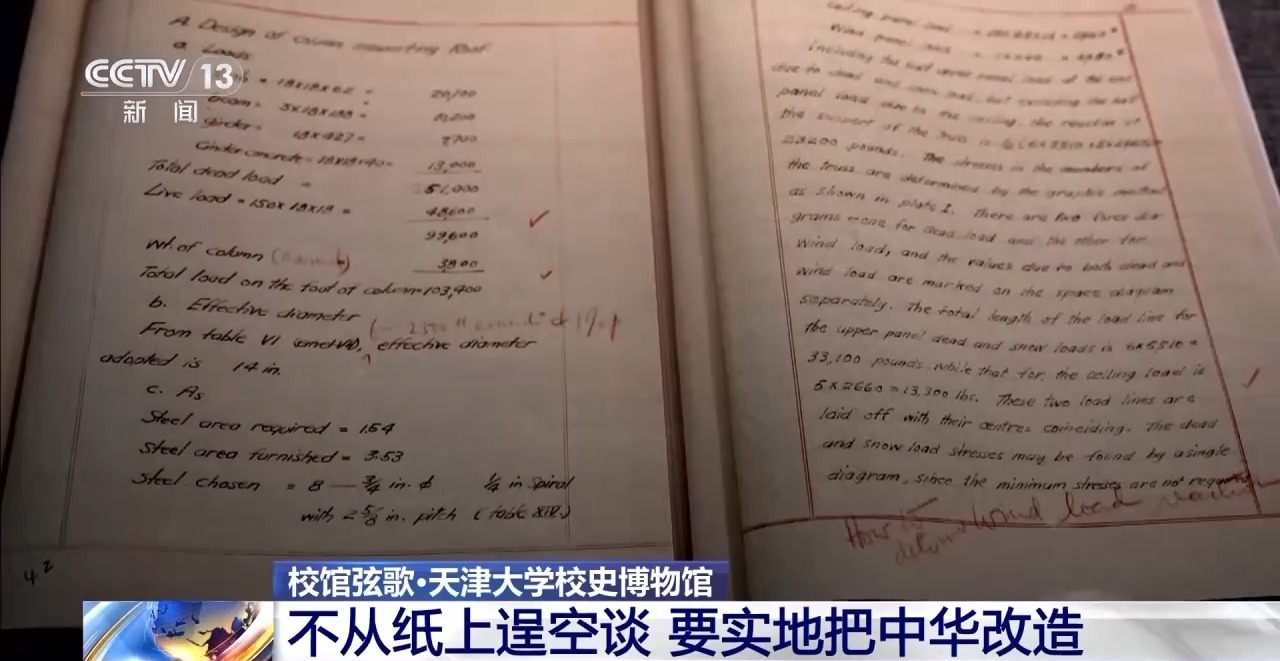 CCTV 13
新闻
A. Design of Column supporting Roof
a. Loads
= 18x18x62 = 20,100
Beam = 3x18x188 = 10,200
Girder = 18x427 = 7700
Cinder concrete = 18x18x40 = 13,000
Total dead load = 51,000
Live load = 150x18x18 = 48,600
99,600
Wt. of column 3800
Total load on the foot of column = 103,400
b. Effective diameter
From table VI (and VII), effective diameter
adopted is 14 in.
c. As
Steel area required = 1.54
Steel area furnished = 3.53
Steel chosen = 8 — 3/4 in. ϕ 1/4 in spiral
with 2 5/8 in. pitch (table XIV.)
42
Ceiling panel load
Wind panel load
Including the half upper panel load at the end
due to dead and snow load, but excluding the half
panel load due to the ceiling, the reaction at
the support of the truss is
23200 pounds. The stresses in the members of
the truss are determined by the graphic method
as shown in plate I. There are two force dia-
grams - one for dead load and the other for
wind load, and the values due to both dead and
wind load are marked on the space diagram
separately. The total length of the load line for
the upper panel dead and snow loads is 6x5510 =
33,100 pounds while that for the ceiling load is
5x2660 = 13,300 lbs. These two load lines are
laid off with their centres coinciding. The dead
and snow load stresses may be found by a single
diagram, since the minimum stresses are not required
How is
wind load
校馆弦歌·天津大学校史博物馆
不从纸上逞空谈 要实地把中华改造